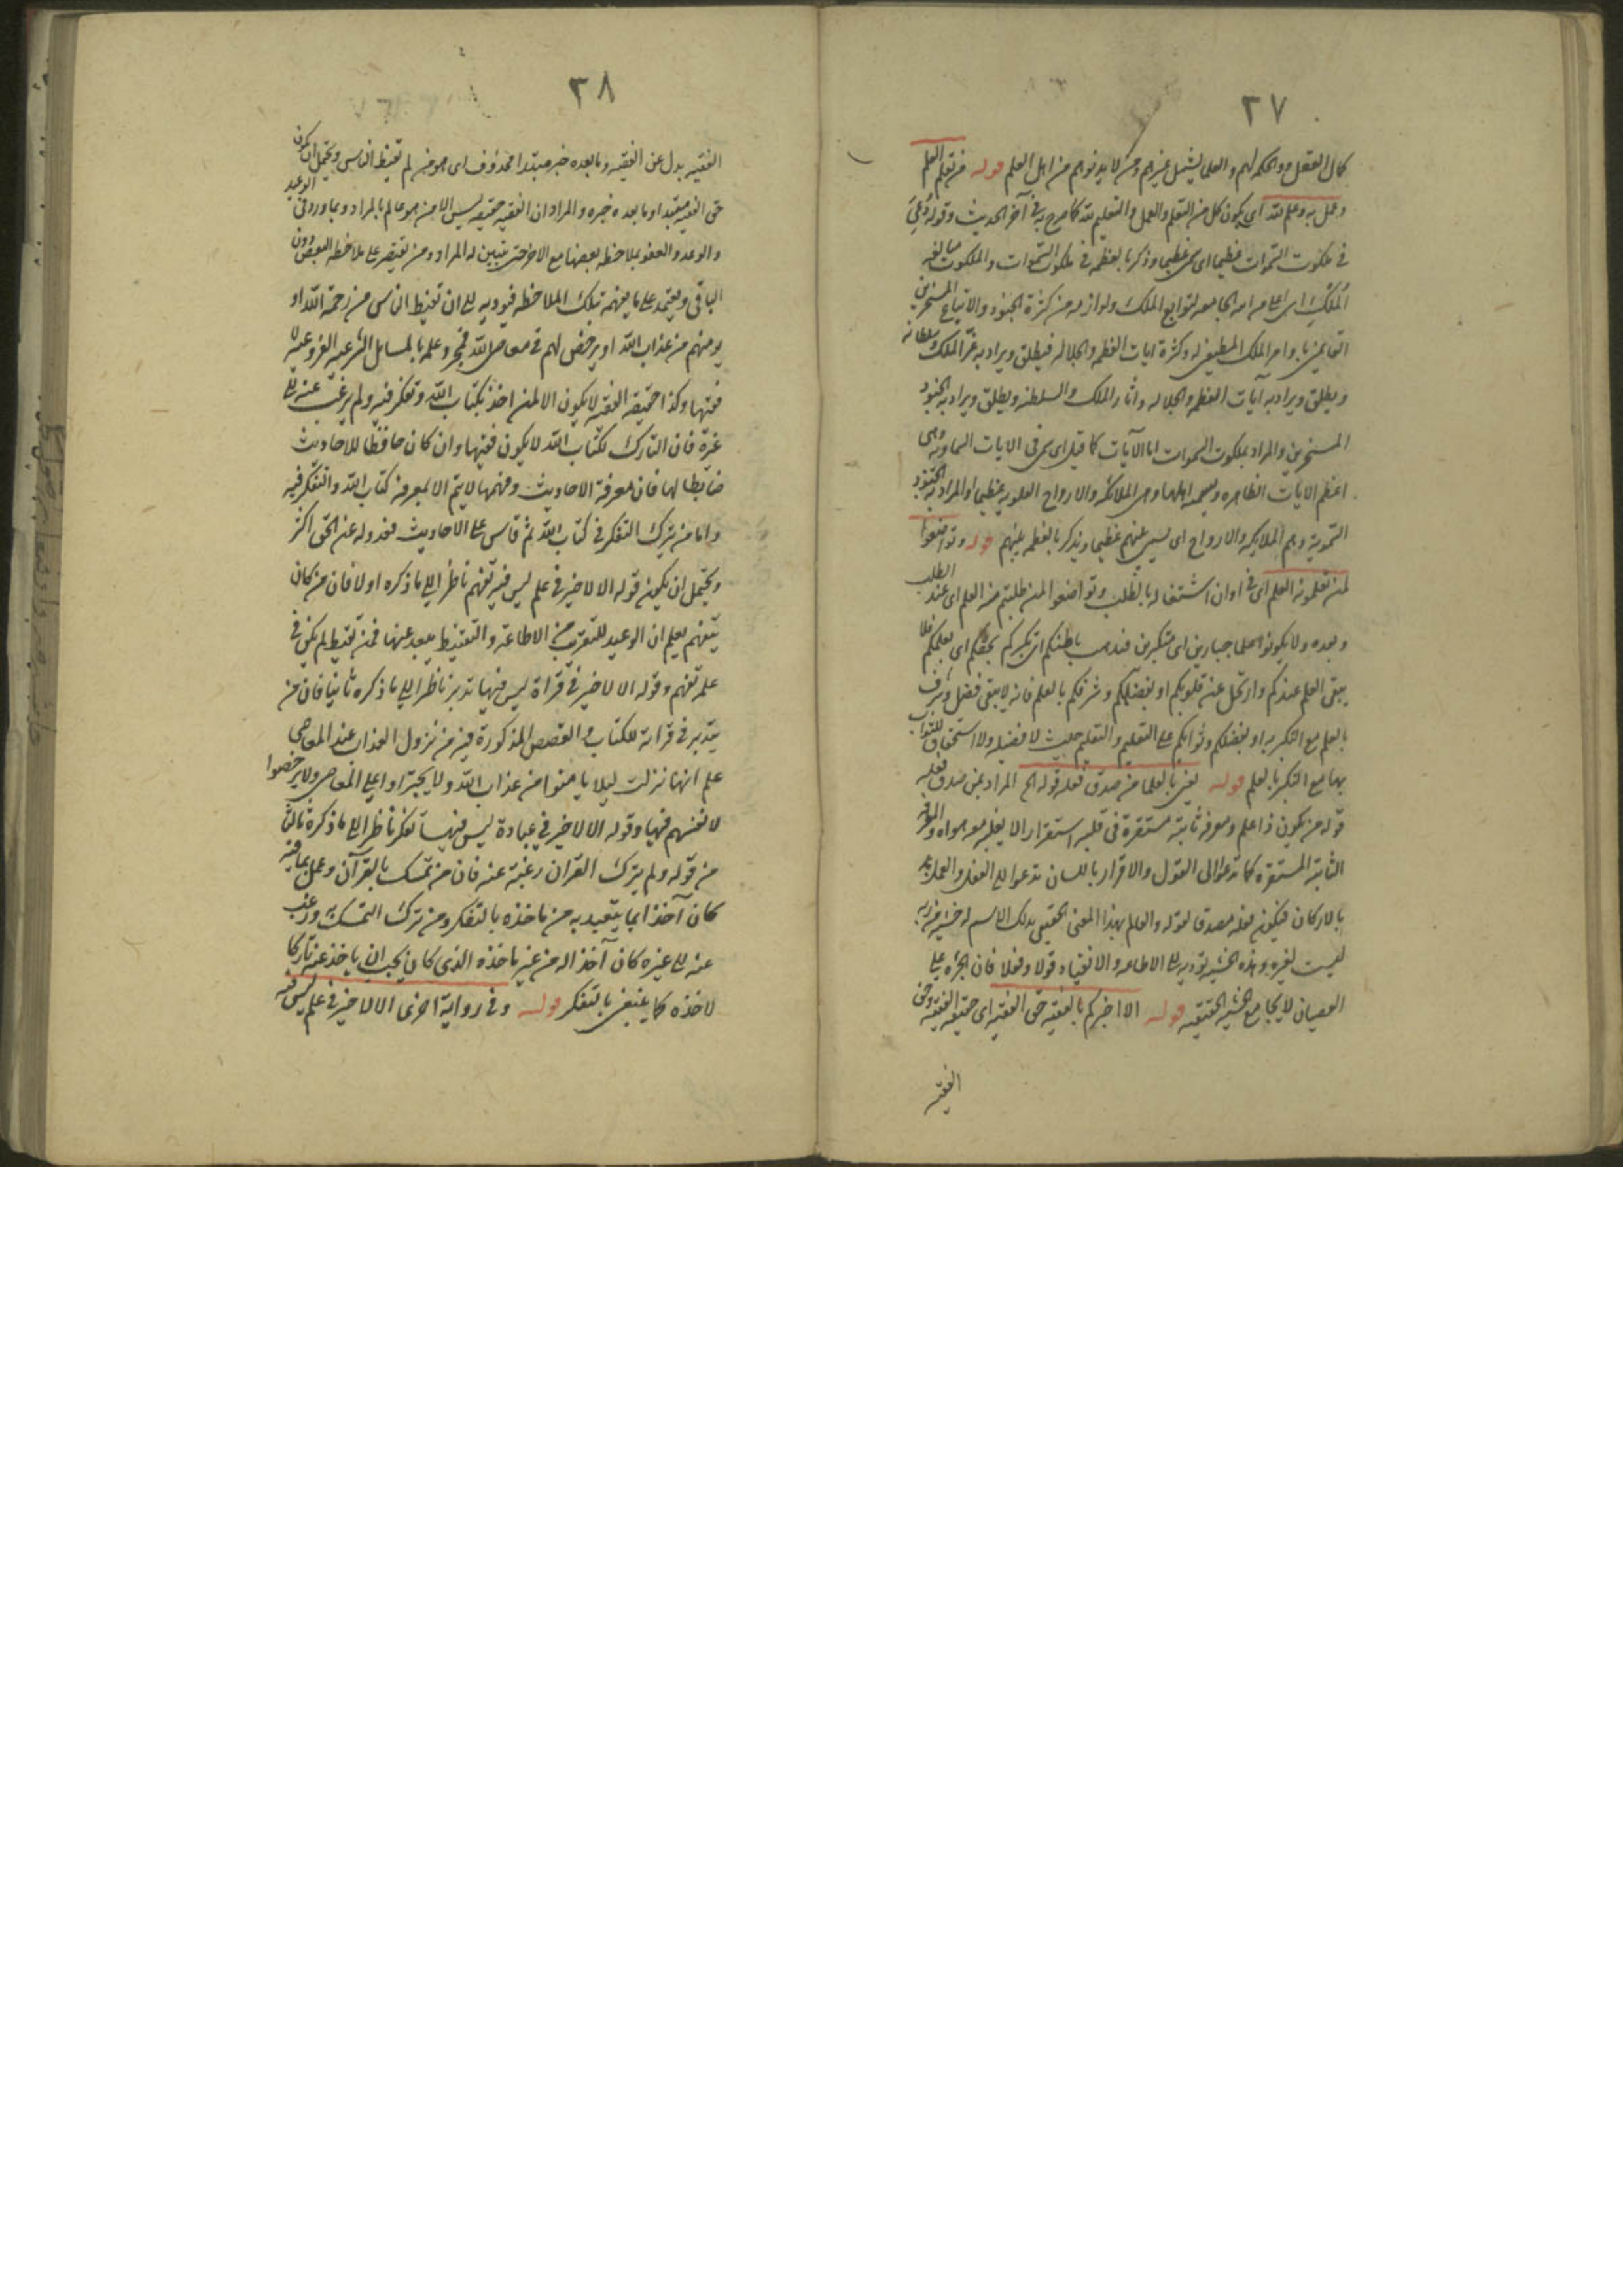 ٣٧
كمال العقل والحكم لهم والعلما يشمل غيرهم ومن لا يدنوهم من اهل العلم قوله من تعلم العلم
وعمل به وعلم لله اى يكون كل من التعلم والعمل والتعليم لله كما صرح به فى آخر الحديث وقوله دُعِىَ
فى ملكوت السموات عظيما اى سمى عظيما وذكر بالعظمه فى ملكوت السموات والملكوت مبالغه
المُلك
القائمين باوامر الملك المطيعين له وكثرة ايات العظمه والجلاله فيطلق ويراد به عز الملك وسلطانه
ويطلق ويراد به آيات العظمه والجلاله واثار الملك والسلطنه ويطلق ويراد به الجنود
المسخرين والمراد بملكوت السموات اما الآيات كما قيل اى سمى فى الايات السماويه وهى
اعظم الايات الظاهره وتسميه اهلها وهى الملائكه والارواح العلويه عظيما او المراد به الجنود
السمويه وهم الملايكه والارواح اى يسمى بينهم عظيما ويذكر بالعظمه بينهم قوله وتواضعوا
لمن تعلمونه العلم اى فى اوان اشتغاله بالطلب وتواضعوا لمن طلبتم منه العلم اى عند الطلب
وبعده ولا تكونوا علما جبارين اى متكبرين فيذهب باطلكم اى تكبركم بحقكم اى بعلمكم فلا
يبقى العلم عندكم وارتحل عن قلوبكم او بفضلكم وشرفكم بالعلم فانه لا يبقى فضل وشرف
بالعلم مع التكبر به او بفضلكم وثوابكم على التعليم والتعلم حيث لا فضيله ولا استحقاق للثواب
بهما مع التكبر بالعلم قوله يعنى بالعلما من صدق فعله قوله الخ المراد بمن صدق فعله
قوله من يكون ذا علم ومعرفه ثابته مستقرة فى قلبه استقرارا لا يغلبه معه هواه والمعرفه
الثابته المستقره كما تدعوا الى القول والاقرار باللسان تدعوا الى الفعل والعمل
بالاركان فيكون فعله مصدقا لقوله والعالم بهذا المعنى الحقيقى بذلك الاسم له خشيه من ربه
ليست لغيره وهذه الخشيه تؤديه الى الاطاعه والانقياد قولا وفعلا فان الجرءه على
العصيان لا يجامع الخشيه الحقيقيه قوله الا اخبركم بالفقيه حق الفقيه اى حقيقه الفقيه وحق
الفقيه
٣٨
الفقيه بدل عن الفقيه وما بعده خبر مبتدا محذوف اى هو من لم تقنيط الناس ويحتمل ان يكون
حق الفقيه مبتدا وما بعده خبره والمراد ان الفقيه حقيقه ليس الا من هو عالم بالمراد وبما ورد فى الوعيد
والوعد والعفو بملاحظه بعضها مع الاخر حتى يتبين له المراد ومن يقتصر على ملاحظه البعض دون
الباقى ويعتمد على ما يفهمه بتلك الملاحظه فيوديه الى ان تقنيط الناس من رحمة الله او
يومنهم من عذاب الله او يرخص لهم فى معاصى الله فمجرد علمه بالمسائل الشرعيه الفروعيه لا
فقيها وكذا حقيقه الفقه لا يكون الا لمن اخذ بكتاب الله وتفكر فيه ولم يرغب عنه الى
غيره فان التارك لكتاب الله لا يكون فقيها وان كان حافظا للاحاديث
ضابطا لها فان معرفة الاحاديث وفهمها لا يتم الا بمعرفه كتاب الله والتفكر فيه
واما من يترك التفكر فى كتاب الله ثم قاس على الاحاديث فعدوله عن الحق اكثر
ويحتمل ان يكون قوله الا لا خير فى علم ليس فيه تفهم ناظرا الى ما ذكره اولا فان من كان
يتفهم يعلم ان الوعيد للتقريب من الاطاعه والتقنيط يبعد عنها فمن تقنيط لم يكن فى
علمه تفهم وقوله الا لا خير فى قراة ليس فيها تدبر ناظرا الى ما ذكره ثانيا فان من
يتدبر فى قرائة الكتاب والقصص المذكورة فيه من نزول العذاب عند المعاصى
علم انها نزلت ليلا يامنوا من عذاب الله ولا يجتراوا على المعاصى ولا يرخصوا
لانفسهم فيها وقوله الا لا خير فى عبادة ليس فيها تفكر ناظر الى ما ذكره ثالثا
من قوله ولم يترك القران رغبة عنه فان من تمسك بالقرآن وعمل بما فيه
كان آخذا بما يتعبد به من ماخذه بالتفكر ومن ترك التمسك به ورغب
عنه الى غيره كان آخذا له من غير ماخذه الذى كان يجب ان ياخذ عنه تاركا
لاخذه كما ينبغى بالتفكر قوله وفى رواية اخرى الا لا خير فى علم ليس فيه